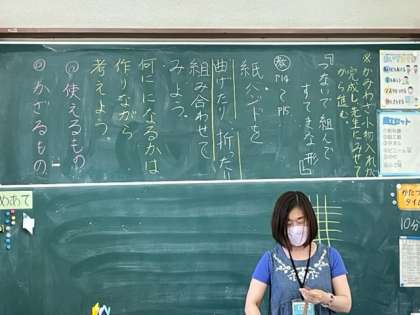 ※かみわざ小物入れが
完成し、先生にみせて
から進む。
「つないで組んで
すてきな形」
教P14〜P15
紙バンドを
曲げたり 折ったり
組み合わせて
みよう。
何になるかは
作りながら
考えよう。
① 使えるもの
② かざるもの
めあて
かたづけ
タイム
10分